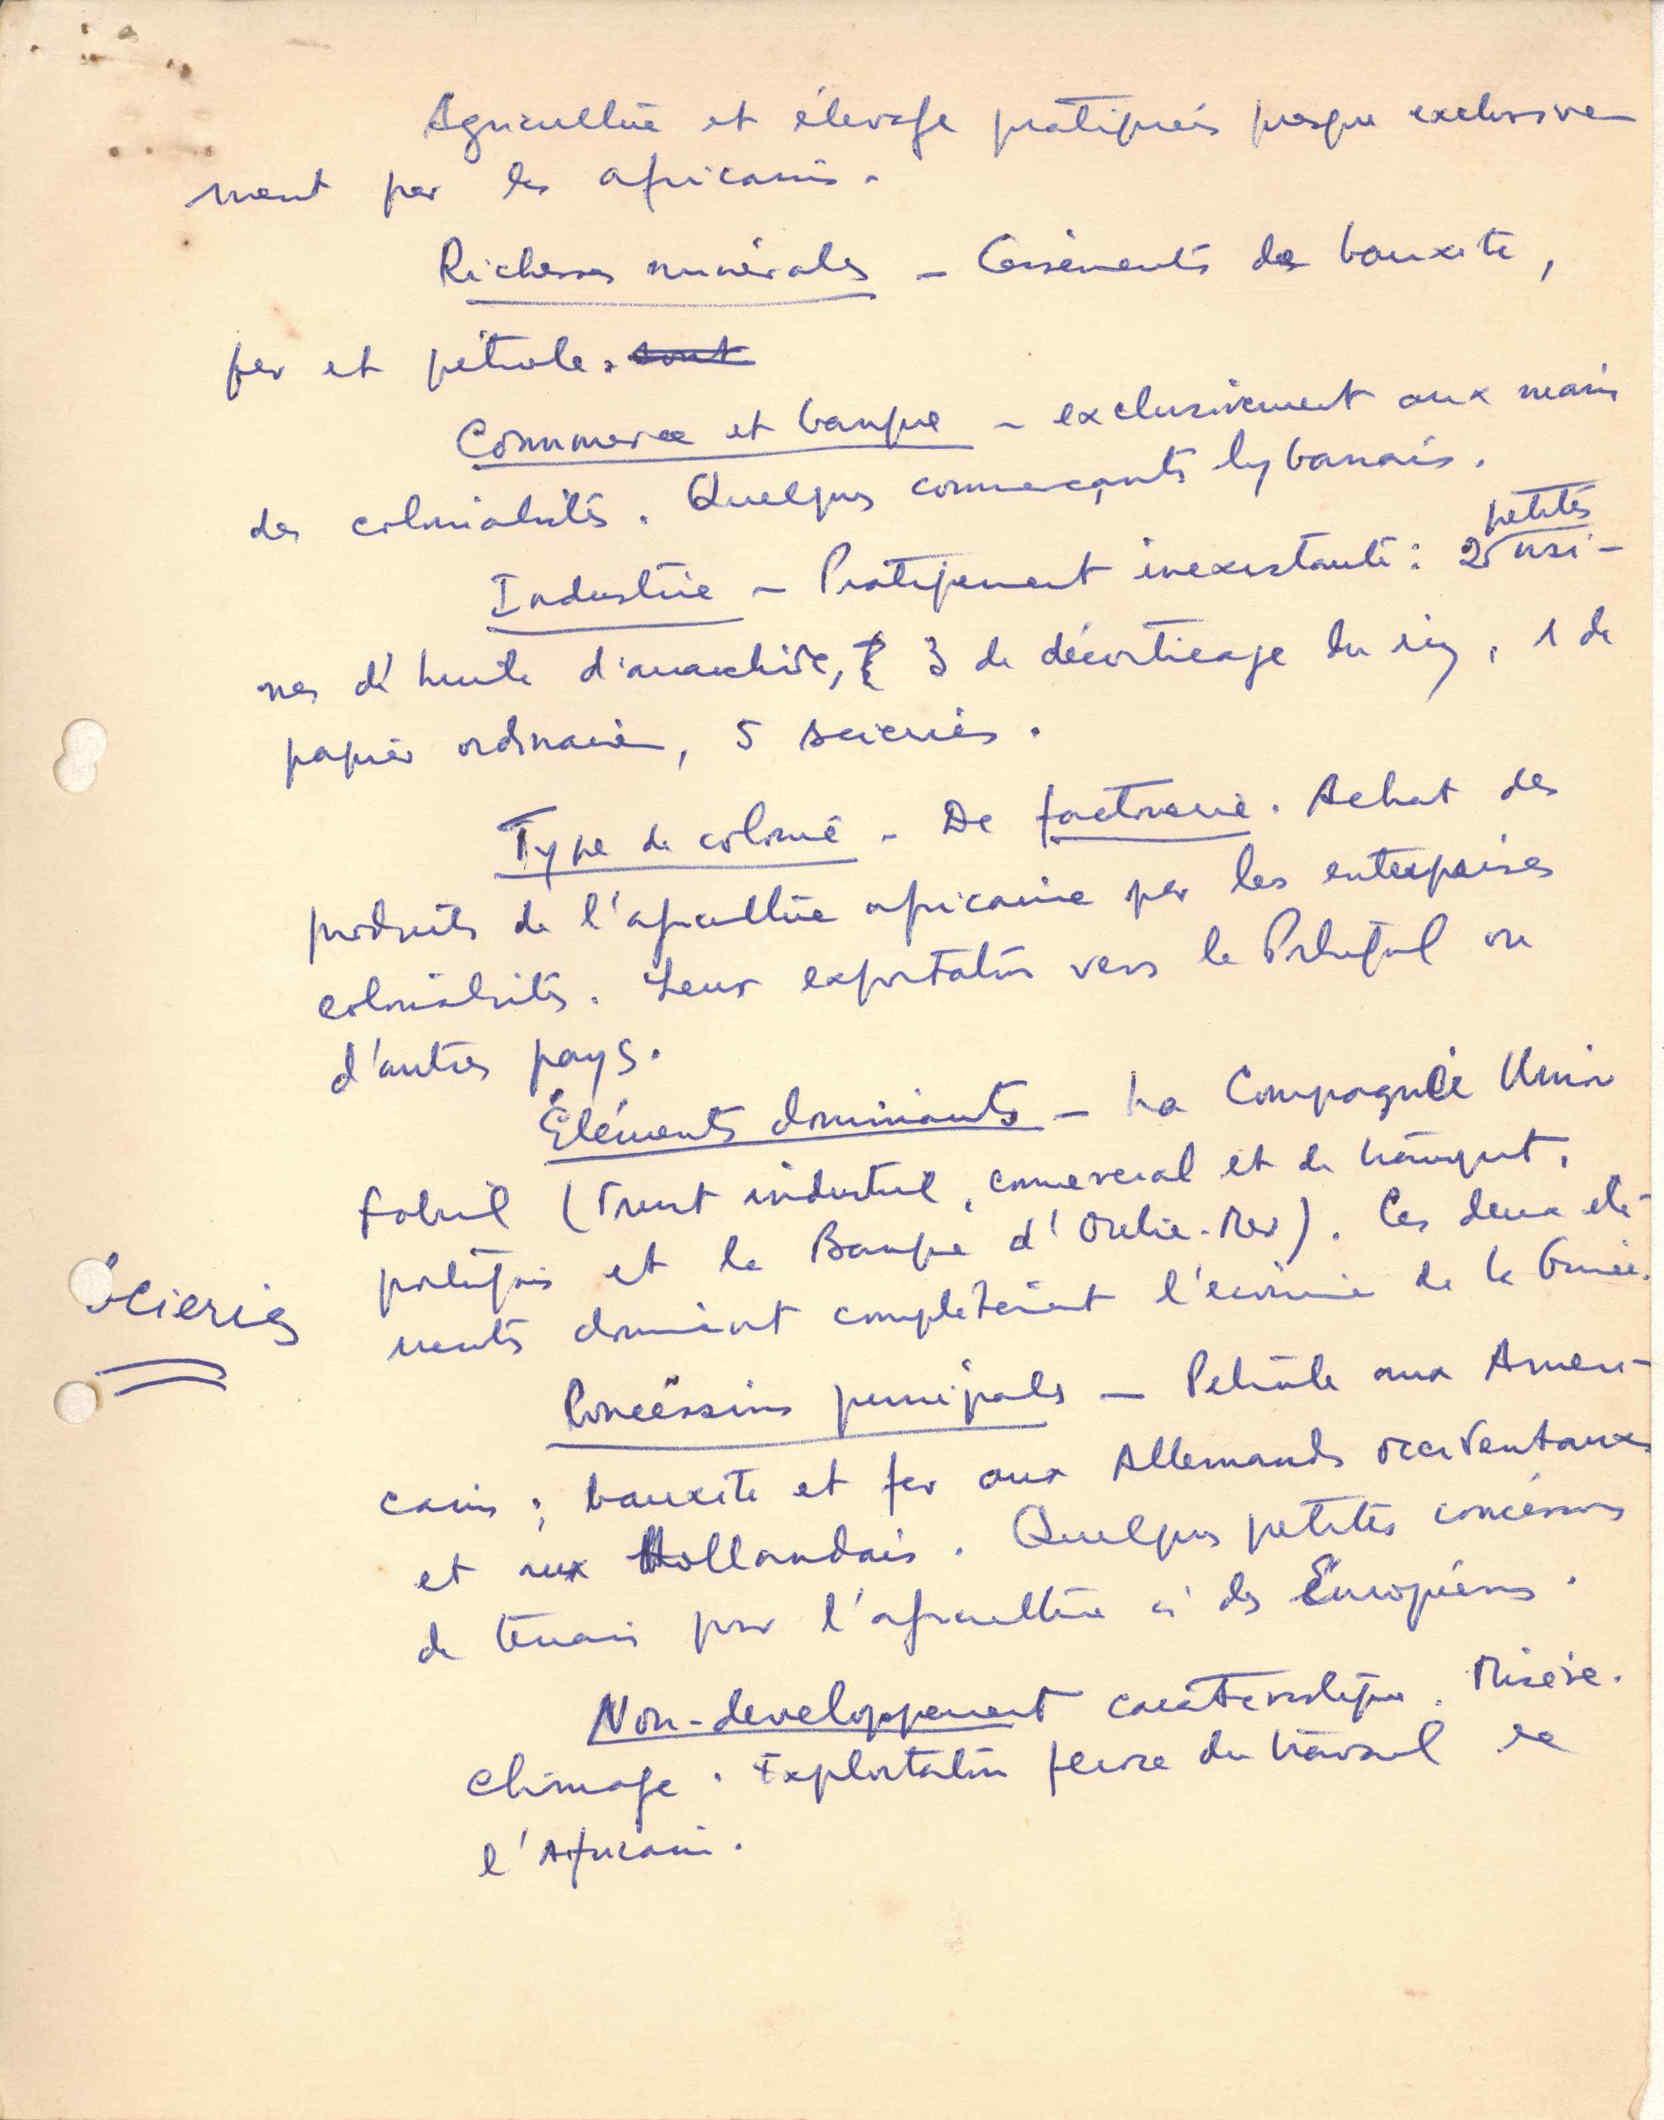 Agriculture et élevage pratiqués presque exclusive-
ment par les africains.
Richesses minérales - Gisements de bauxite,
fer et pétrole. sont
Commerce et banque - exclusivement aux mains
des colonialistes. Quelques commerçants lybanais.
petites
Industrie - Pratiquement inexistante : 2 usi-
nes d'huile d'arachide, 3 de décorticage du riz, 1 de
papier ordinaire, 5 scieries.
Type de colonie - De factorerie. Achat des
produits de l'agriculture africaine par les entreprises
colonialistes. Leur exportation vers le Portugal ou
d'autres pays.
Éléments dominants - La Compagnie União
Fabril (Trust industriel, comercial et de transport,
portugais et la Banque d'Outre-Mer). Ces deux élé-
ments dominent complètement l'économie de la Guinée.
Scieries
Concessions principales - Pétrole aux Améri-
cains ; bauxite et fer aux Allemands occidentaux
et aux Hollandais. Quelques petites concessions
de terrain pour l'agriculture à des Européens.
Non-developpement caractéristique. Misère.
Chômage. Exploitation féroce du travail de
l'Africain.